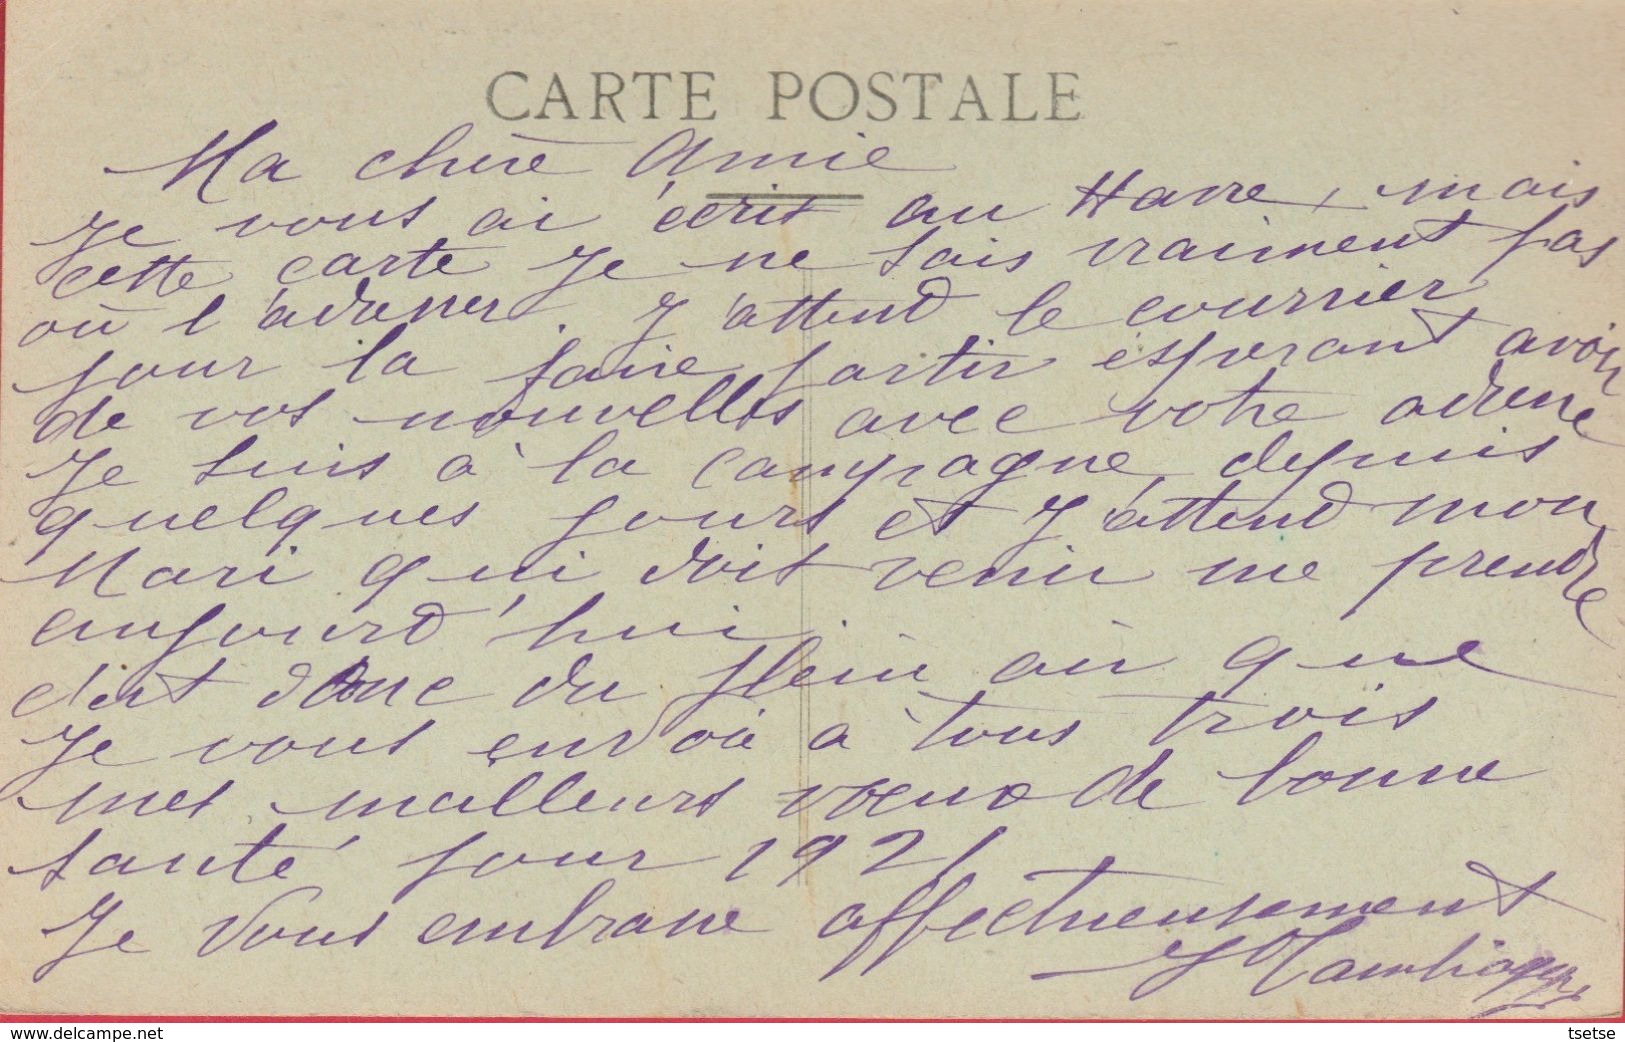 CARTE POSTALE
Ma chère Amie
Je vous ai écrit au Havre, mais
cette carte Je ne sais vraiment pas
où l'adresser J'attend le courrier
pour la faire partir esperant avoir
de vos nouvelles avec votre adresse
Je suis à la campagne depuis
quelques jours et J'attend mon
Mari qui doit venir me prendre
aujourd'hui
c'est donc du plein air que
Je vous envoie à tous trois
mes meilleurs voeux de bonne
santé pour 1921
Je Vous embrasse affectueusement
delcampe.net
tsetse